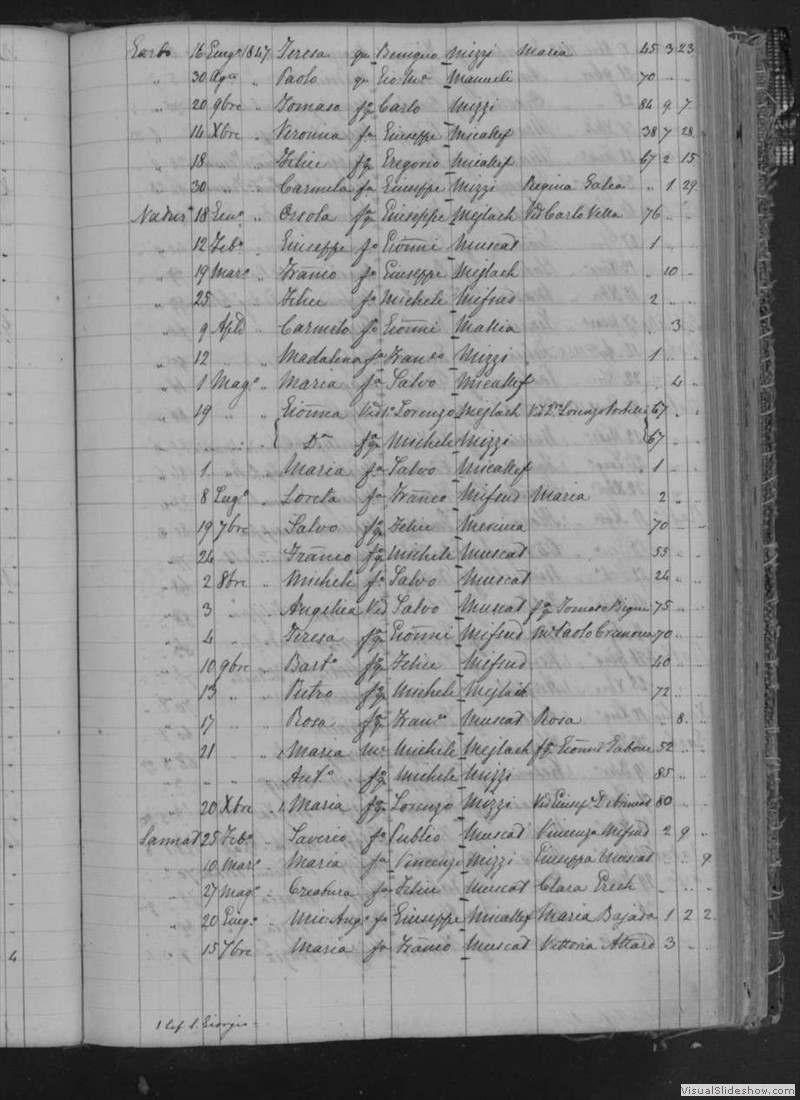 Garbo 16 Giug° 1847 Teresa qm Benigno Mizzi Maria 45 3 23
" 30 Ag° " Paolo qm Gio Ma Manueli 70 " "
" 20 9bre " Tomaso fq Carlo Mizzi 84 9 7
" 14 Xbre " Veronica fa Giuseppe Micallef 38 7 28
" 18 " " Felice fq Gregorio Micallef 67 2 15
" 30 " " Carmela fa Giuseppe Mizzi Regina Galea " 1 29
Nadur 18 Gen° " Orsola fq Giuseppe Mejlach Vid Carlo Vella 76 " "
" 12 Feb° " Giuseppe f° Gionni Muscat 1 " "
" 19 Mar° " Franco f° Giuseppe Mejlach " 10 "
" 25 " " Felice f° Michele Mifsud 2 " "
" 9 Aple " Carmelo f° Gionni Mallia " 3 "
" 12 " " Madalina fa Franco Mizzi 1 " "
" 1 Mag° " Maria fa Salvo Micallef " 4 "
" 19 " " Gionna Vid Lorenzo Mejlach Vid Lorenzo Portelli 67 " "
" " " Da fq Michele Mizzi 67 " "
" 1 " " Maria fa Salvo Micallef 1 " "
" 8 Lug° " Loreta fa Franco Mifsud Maria 2 " "
" 19 7bre " Salvo fq Felice Mercieca 70 " "
" 24 " " Franco fq Michele Muscat 55 " "
" 2 8bre " Michele f° Salvo Muscat 24 " "
" 3 " " Angelica Vid Salvo Muscat fq Tomaso 75 " "
" 4 " " Teresa fq Gionni Mifsud Paolo 70 " "
" 10 9bre " Bart° fq Felice Mifsud 40 " "
" 13 " " Pietro fq Michele Mejlach 72 " "
" 17 " " Rosa fq Fran° Muscat Rosa " 8 "
" 21 " " Maria Me Michele Mejlach fq Gionni 52 " "
" " " " Ant° fq Michele Mizzi 85 " "
" 20 Xbre " Maria fq Lorenzo Mizzi Vid Giuse 80 " "
Sannat 25 Feb° " Saverio f° Publio Muscat Vincenza Mifsud 2 9 "
" 10 Mar° " Maria fa Vincenzo Mizzi Giuseppa Muscat " " 9
" 27 Mag° " Creatura f° Felice Muscat Clara Grech " " "
" 20 Giug° " Mic: Ang° f° Giuseppe Micallef Maria Bajada 1 2 2
" 15 7bre " Maria fa Franco Muscat Vittoria Attard 3 " "
4
S. Giorgio
VisualSlideshow.com